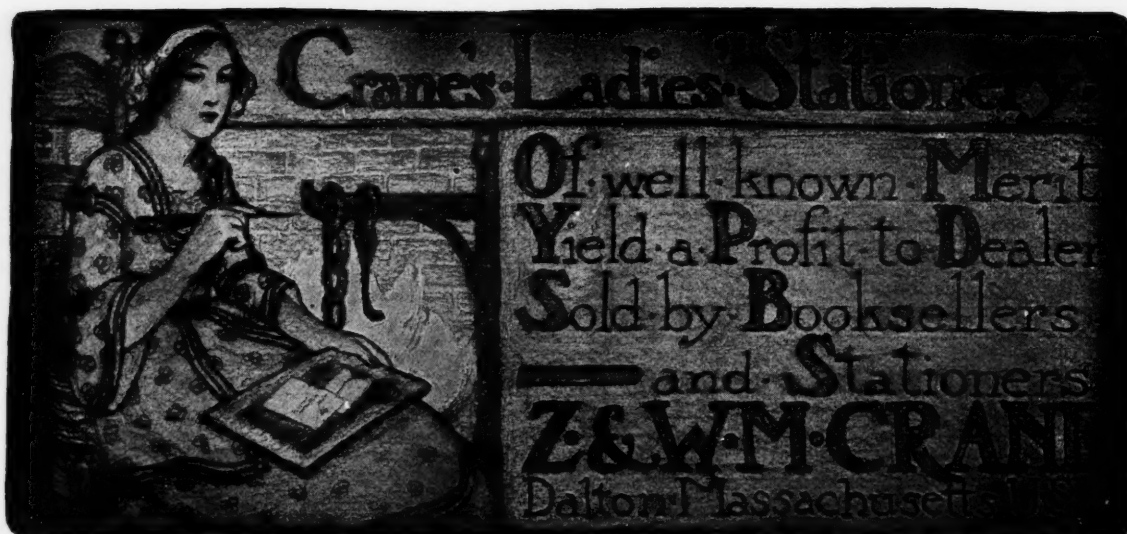 Crane's·Ladies·Stationery
Of·well·known·Merit
Yield·a·Profit·to·Dealer
Sold·by·Booksellers
and·Stationers
Z·&·W·M·CRANE
Dalton·Massachusetts·U.S.